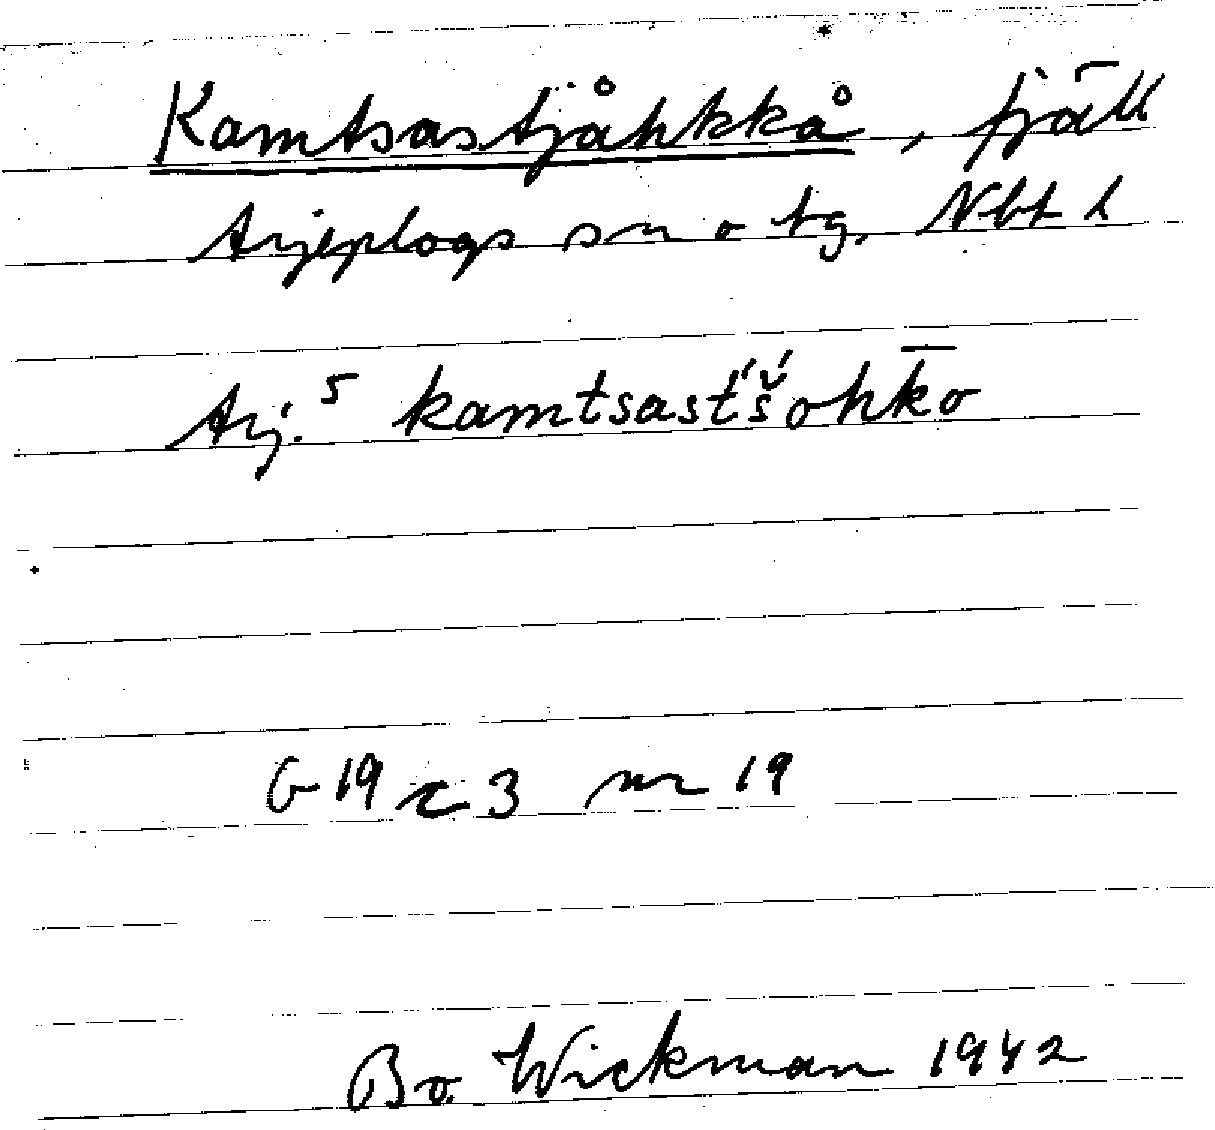 Kamtsastjåhkkå, fjäll
Arjeplogs sn o tg. Nbt l
Arj.⁵ kamtsast́š́ohk̄o
G 19 c 3 nr 19
Bo Wickman 1942